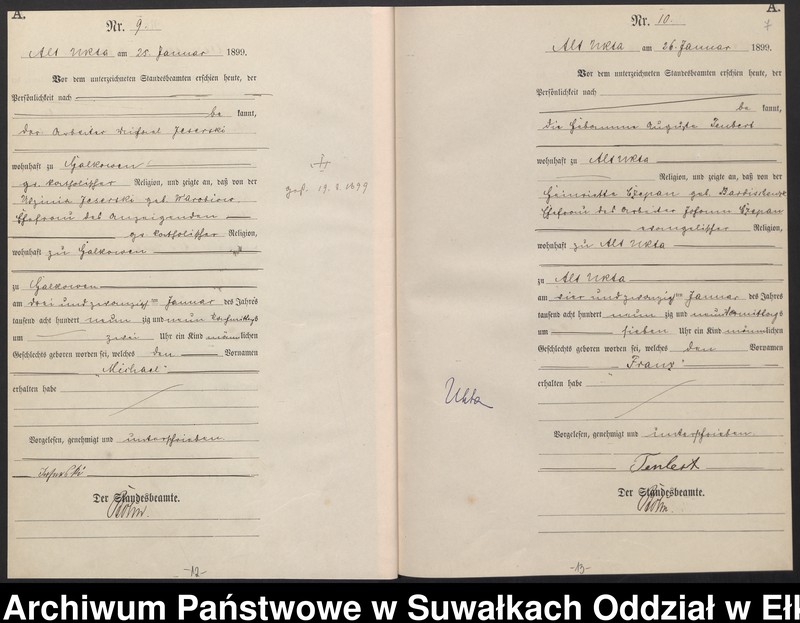 A.
Nr. 9.
Alt Ukta am 25. Januar 1899.
Vor dem unterzeichneten Standesbeamten erschien heute, der
Persönlichkeit nach
be kannt,
der Arbeiter Jeserski
wohnhaft zu Galkowen
gr. katholischer Religion, und zeigte an, daß von der
Jeserski geb.
Ehefrau des Anzeigenden
gr. katholischer Religion,
wohnhaft zu Galkowen
zu Galkowen
am drei und zwanzigten Januar des Jahres
tausend acht hundert neunzig und neun Nachmittags
um zwei Uhr ein Kind männlichen
Geschlechts geboren worden sei, welches den Vornamen
"Michael"
erhalten habe
Vorgelesen, genehmigt und unterschrieben
Der Standesbeamte.
-12-
A.
7
Nr. 10.
Alt Ukta am 26. Januar 1899.
Vor dem unterzeichneten Standesbeamten erschien heute, der
Persönlichkeit nach
be kannt,
die Hebamme Auguste Tenbert
wohnhaft zu Alt Ukta
Religion, und zeigte an, daß von der
Heinriette Czepan geb.
Ehefrau des Arbeiter Johann Czepan
evangelischer Religion,
wohnhaft zu Alt Ukta
zu Alt Ukta
am vier und zwanzigten Januar des Jahres
tausend acht hundert neunzig und neun Vormittags
um sieben Uhr ein Kind männlichen
Geschlechts geboren worden sei, welches den Vornamen
"Franz"
erhalten habe
Ukta
Vorgelesen, genehmigt und unterschrieben
Tenbert
Der Standesbeamte.
-13-
Archiwum Państwowe w Suwałkach Oddział w Ełk